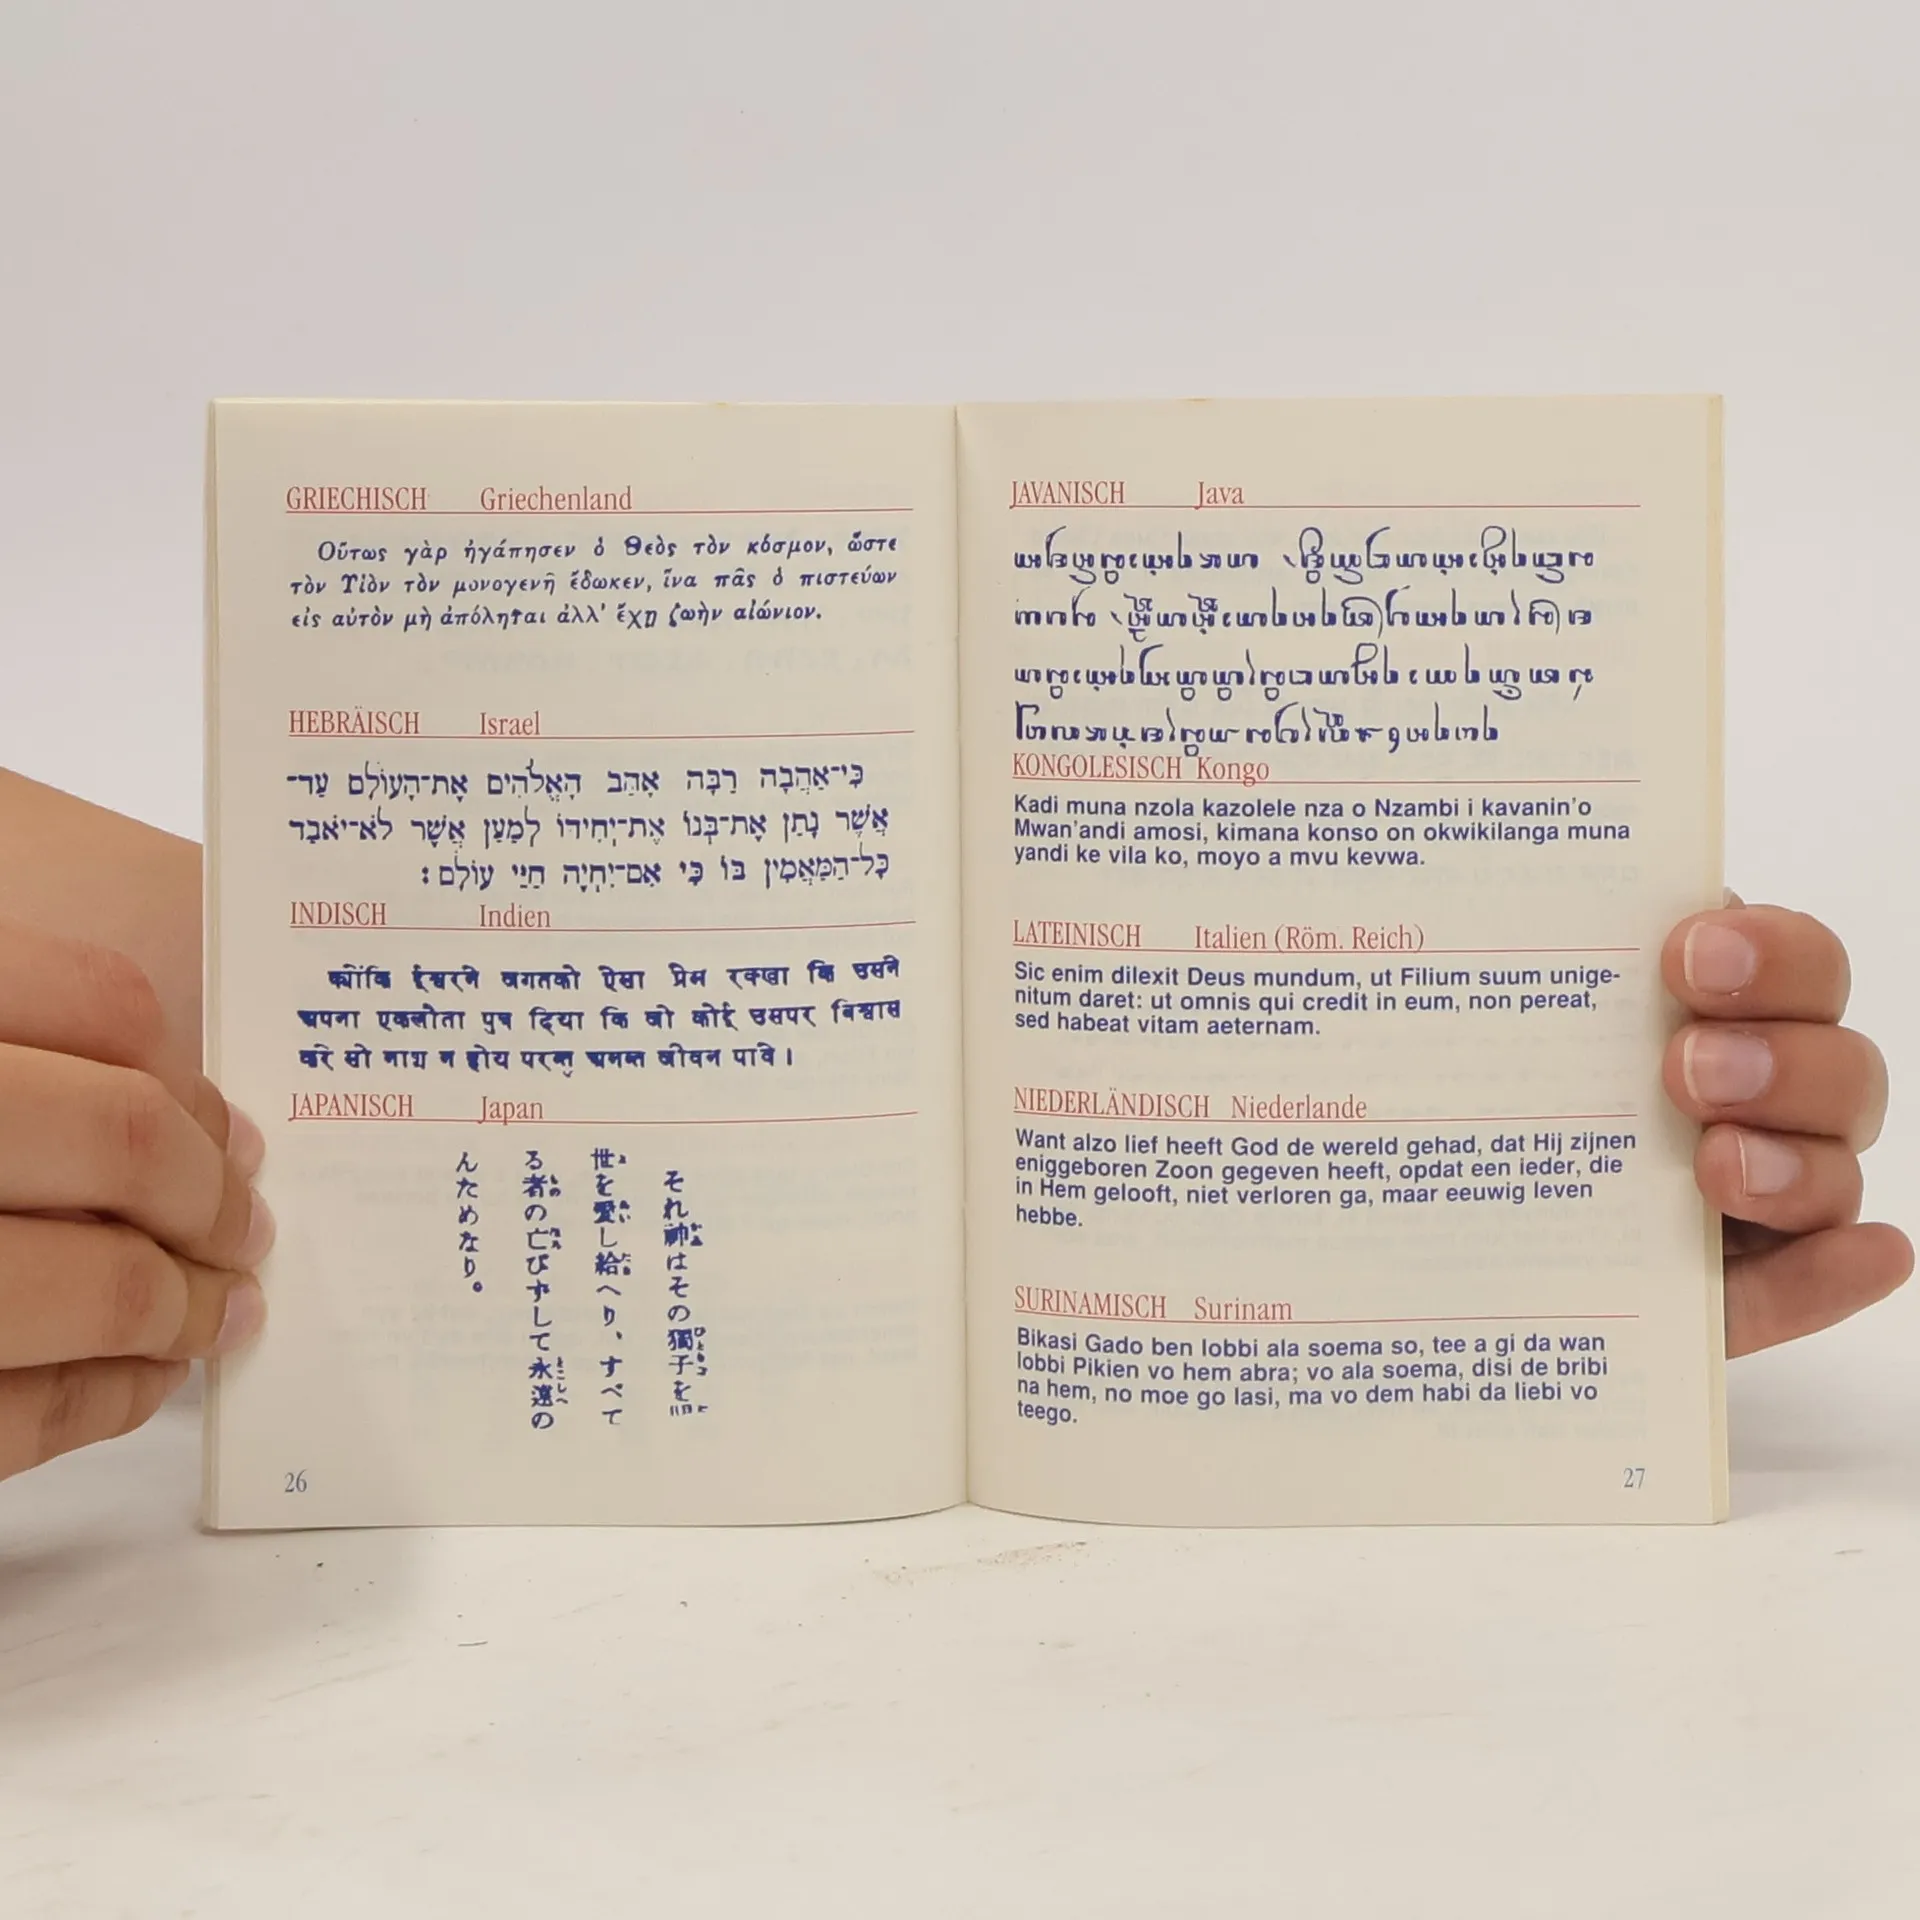 GRIECHISCH Griechenland
Οὕτως γὰρ ἠγάπησεν ὁ Θεὸς τὸν κόσμον, ὥστε
τὸν Υἱὸν τὸν μονογενῆ ἔδωκεν, ἵνα πᾶς ὁ πιστεύων
εἰς αὐτὸν μὴ ἀπόληται ἀλλ' ἔχῃ ζωὴν αἰώνιον.
HEBRÄISCH Israel
כִּי־אַהֲבָה רַבָּה אָהַב הָאֱלֹהִים אֶת־הָעוֹלָם עַד־
אֲשֶׁר נָתַן אֶת־בְּנוֹ אֶת־יְחִידוֹ לְמַעַן אֲשֶׁר לֹא־יֹאבַד
כָּל־הַמַּאֲמִין בּוֹ כִּי אִם־יִחְיֶה חַיֵּי עוֹלָם׃
INDISCH Indien
क्योंकि ईश्वरने जगतको ऐसा प्रेम रक्खा कि उसने
अपना एकलौता पुत्र दिया कि जो कोई उसपर विश्वास
करे सो नाश न होय परन्तु अनन्त जीवन पावे।
JAPANISCH Japan
それ神はその獨子を
世を愛し給へり、すべて
る者の亡びずして永遠の
んためなり。
26
JAVANISCH Java
KONGOLESISCH Kongo
Kadi muna nzola kazolele nza o Nzambi i kavanin’o
Mwan’andi amosi, kimana konso on okwikilanga muna
yandi ke vila ko, moyo a mvu kevwa.
LATEINISCH Italien (Röm. Reich)
Sic enim dilexit Deus mundum, ut Filium suum unige-
nitum daret: ut omnis qui credit in eum, non pereat,
sed habeat vitam aeternam.
NIEDERLÄNDISCH Niederlande
Want alzo lief heeft God de wereld gehad, dat Hij zijnen
eniggeboren Zoon gegeven heeft, opdat een ieder, die
in Hem gelooft, niet verloren ga, maar eeuwig leven
hebbe.
SURINAMISCH Surinam
Bikasi Gado ben lobbi ala soema so, tee a gi da wan
lobbi Pikien vo hem abra; vo ala soema, disi de bribi
na hem, no moe go lasi, ma vo dem habi da liebi vo
teego.
27